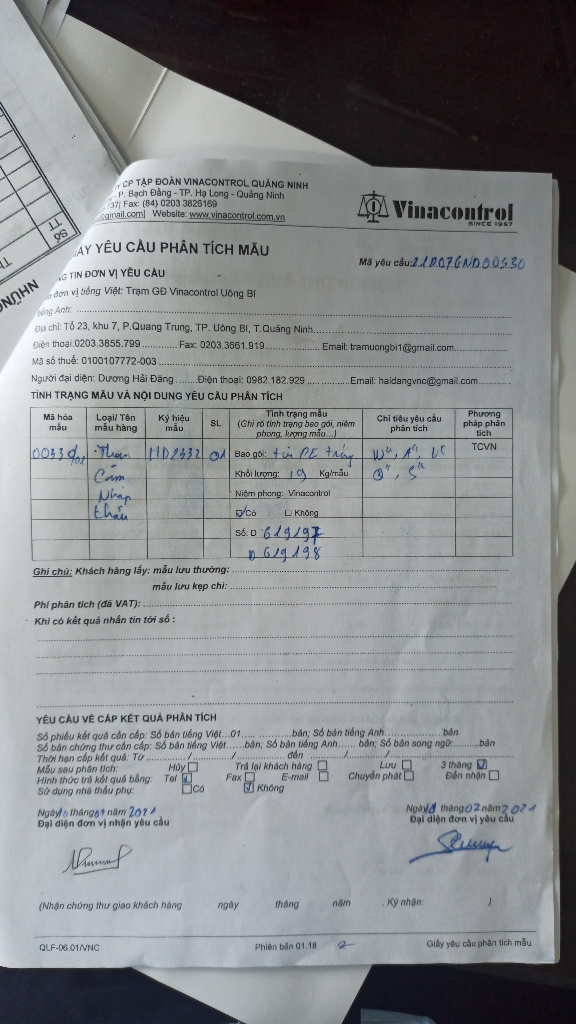 CP TẬP ĐOÀN VINACONTROL QUẢNG NINH
P. Bạch Đằng - TP. Hạ Long - Quảng Ninh
Fax: (84) 0203 3826169
@gmail.com| Website: www.vinacontrol.com.vn
Vinacontrol
SINCE 1957
GIẤY YÊU CẦU PHÂN TÍCH MẪU
Mã yêu cầu:
TIN ĐƠN VỊ YÊU CẦU
đơn vị tiếng Việt: Trạm GĐ Vinacontrol Uông Bí
tiếng Anh:
Địa chỉ: Tổ 23, khu 7, P.Quang Trung, TP. Uông Bí, T.Quảng Ninh
Điện thoại.0203.3855.799 Fax: 0203.3661.919 Email: tramuongbi1@gmail.com
Mã số thuế: 0100107772-003
Người đại diện: Dương Hải Đăng Điện thoại: 0982.182.929 Email: haidangvnc@gmail.com
TÌNH TRẠNG MẪU VÀ NỘI DUNG YÊU CẦU PHÂN TÍCH
Mã hóa mẫu Loại/ Tên mẫu hàng Ký hiệu mẫu SL Tình trạng mẫu (Ghi rõ tình trạng bao gói, niêm phong, lượng mẫu...) Chỉ tiêu yêu cầu phân tích Phương pháp phân tích
Than 11D2332 01 Bao gói: túi PE trắng TCVN
Cám Khối lượng: 19 Kg/mẫu
Nhập Niêm phong: Vinacontrol
khẩu Có Không
Số: D 619197
D 619198
Ghi chú: Khách hàng lấy: mẫu lưu thường:
mẫu lưu kẹp chì:
Phí phân tích (đã VAT):
Khi có kết quả nhắn tin tới số :
YÊU CẦU VỀ CẤP KẾT QUẢ PHÂN TÍCH
Số phiếu kết quả cần cấp: Số bản tiếng Việt...01... bản; Số bản tiếng Anh bản
Số bản chứng thư cần cấp: Số bản tiếng Việt bản; Số bản tiếng Anh bản; Số bản song ngữ: bản
Thời hạn cấp kết quả: Từ / / đến / /
Mẫu sau phân tích: Hủy Trả lại khách hàng Lưu 3 tháng
Hình thức trả kết quả bằng: Tel Fax E-mail Chuyển phát Đến nhận
Sử dụng nhà thầu phụ: Có Không
Ngày tháng 07 năm 2021 Ngày tháng 07 năm 2021
Đại diện đơn vị nhận yêu cầu Đại diện đơn vị yêu cầu
(Nhận chứng thư giao khách hàng ngày tháng năm . Ký nhận: )
QLF-06.01/VNC Phiên bản 01.18 2 Giấy yêu cầu phân tích mẫu